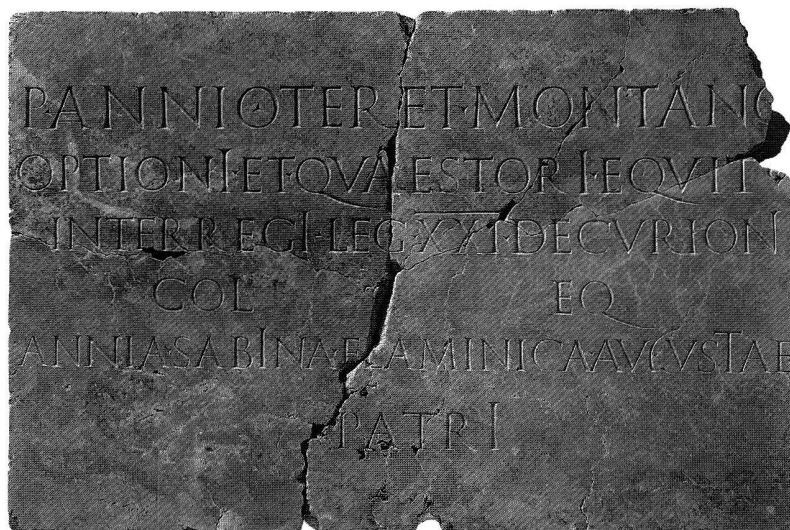 P·ANNIO·TER·ET·MONTANO
OPTIONI·ET·QVAESTORI·EQVIT
INTERREGI·LEG·XXI·DECVRION
COL EQ
ANNIA·SABINA·FLAMINICA·AVGVSTAE
PATRI